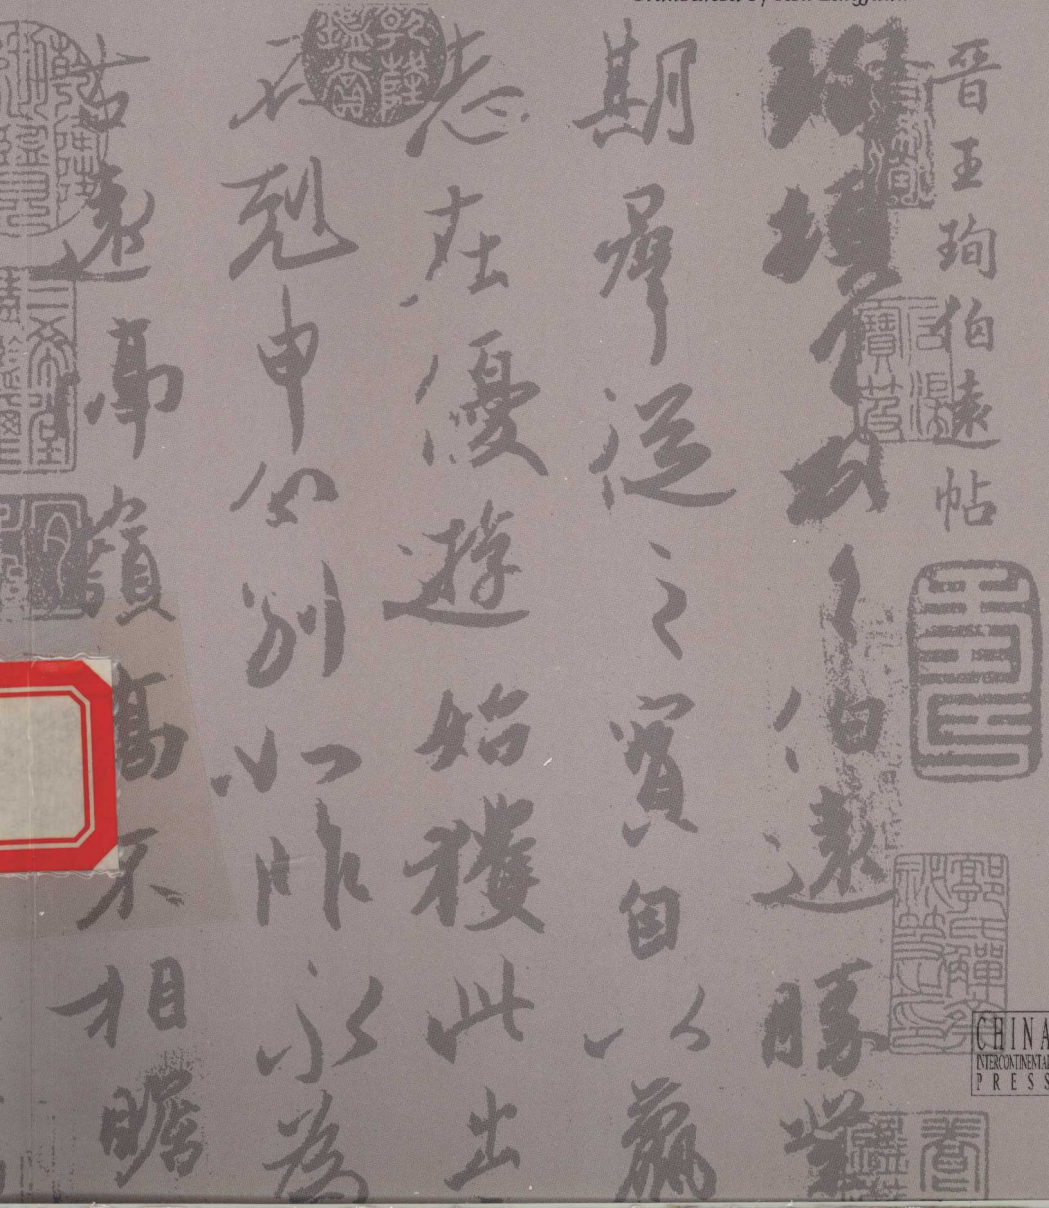 晋王珣伯遠帖
珣頓首頓首伯遠勝業
期羣從之寶自以羸
志在優遊始獲此出
不剋申分別如昨永為
古遠隔嶺嶠不相瞻
乾隆鑑賞
CHINA
INTERCONTINENTAL
PRESS